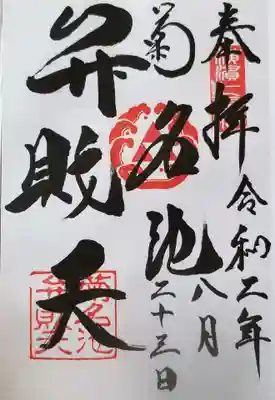 奉拝 令和二年
八月二十三日
菊名池
弁財天
菊名池
弁財天